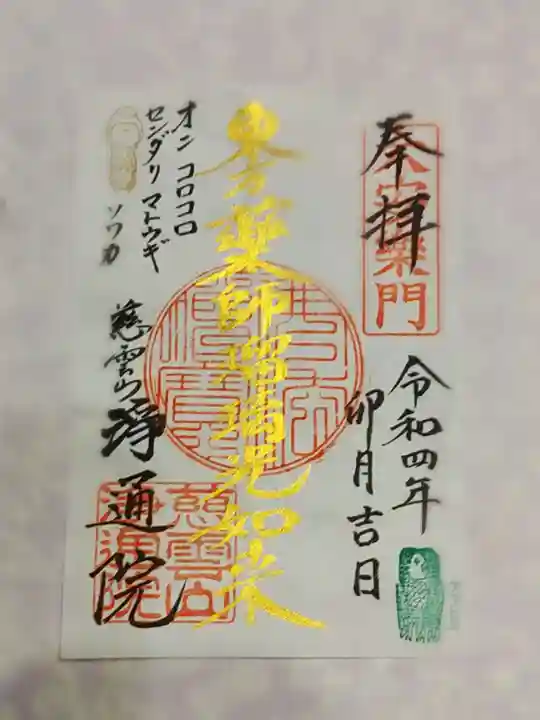 奉拝
令和四年
卯月吉日
東方薬師瑠璃光如来
オン コロコロ
センダリ マトウギ
ソワカ
慈雲山
浄通院
慈雲山